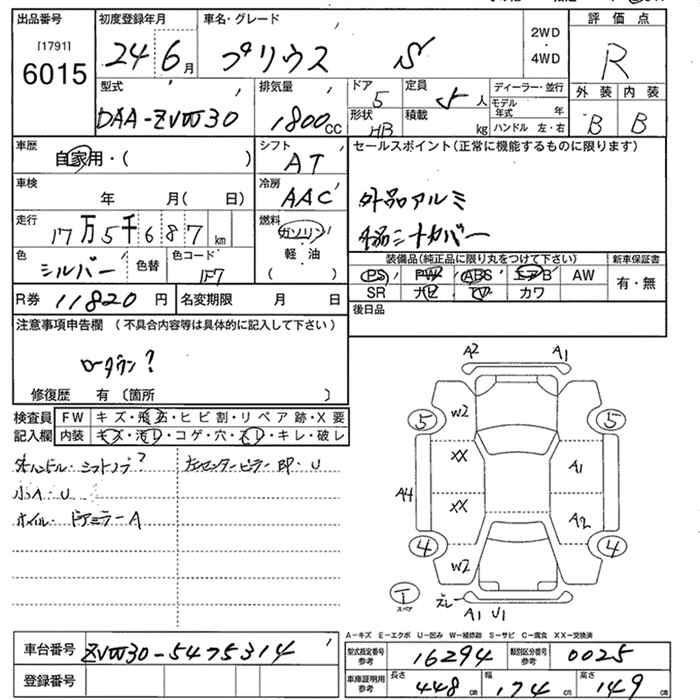 出品番号 初度登録年月 車名・グレード 2WD・4WD 評価点
[1791]
6015 24 6月 プリウス S R
型式 排気量 ドア 定員 ディーラー・並行 外装 内装
DAA-ZVW30 1800cc 5 5人 モデル年式 年 B B
形状 HB 積載 kg ハンドル 左・右
車歴 自家用・( ) シフト AT セールスポイント(正常に機能するものに限ります)
車検 年 月( 日) 冷房 AAC 外品アルミ
走行 17万5千687km 燃料 ガソリン・軽油 ( )
色 シルバー 色替 色コード 1F7 装備品(純正品に限り丸をつけて下さい) 新車保証書
PS PW ABS エアB AW 有・無
SR ナビ TV カワ
R券 11820円 名変期限 月 日 後日品
注意事項申告欄 (不具合内容等は具体的に記入して下さい)
ローダウン?
修復歴 有〔箇所 〕
検査員 FW キズ・飛石・ヒビ割・リペア跡・X要
記入欄 内装 キズ・汚レ・コゲ・穴・スレ・キレ・破レ
ハンドル・シフトノブ?
小A・U
ホイル・ドアミラーA
左センターピラー
A2 A1
5 W2 5
XX A1
A4 XX A2
4 W2 4
T スペア
ズレ A1 U1
A-キズ E-エクボ U-凹み W-補修跡 S-サビ C-腐食 XX-交換済
車台番号 ZVW30-5475314 型式指定番号 参考 16294 類別区分番号 参考 0025
登録番号 車庫証明用 参考 長さ 448cm 幅 174cm 高さ 149cm